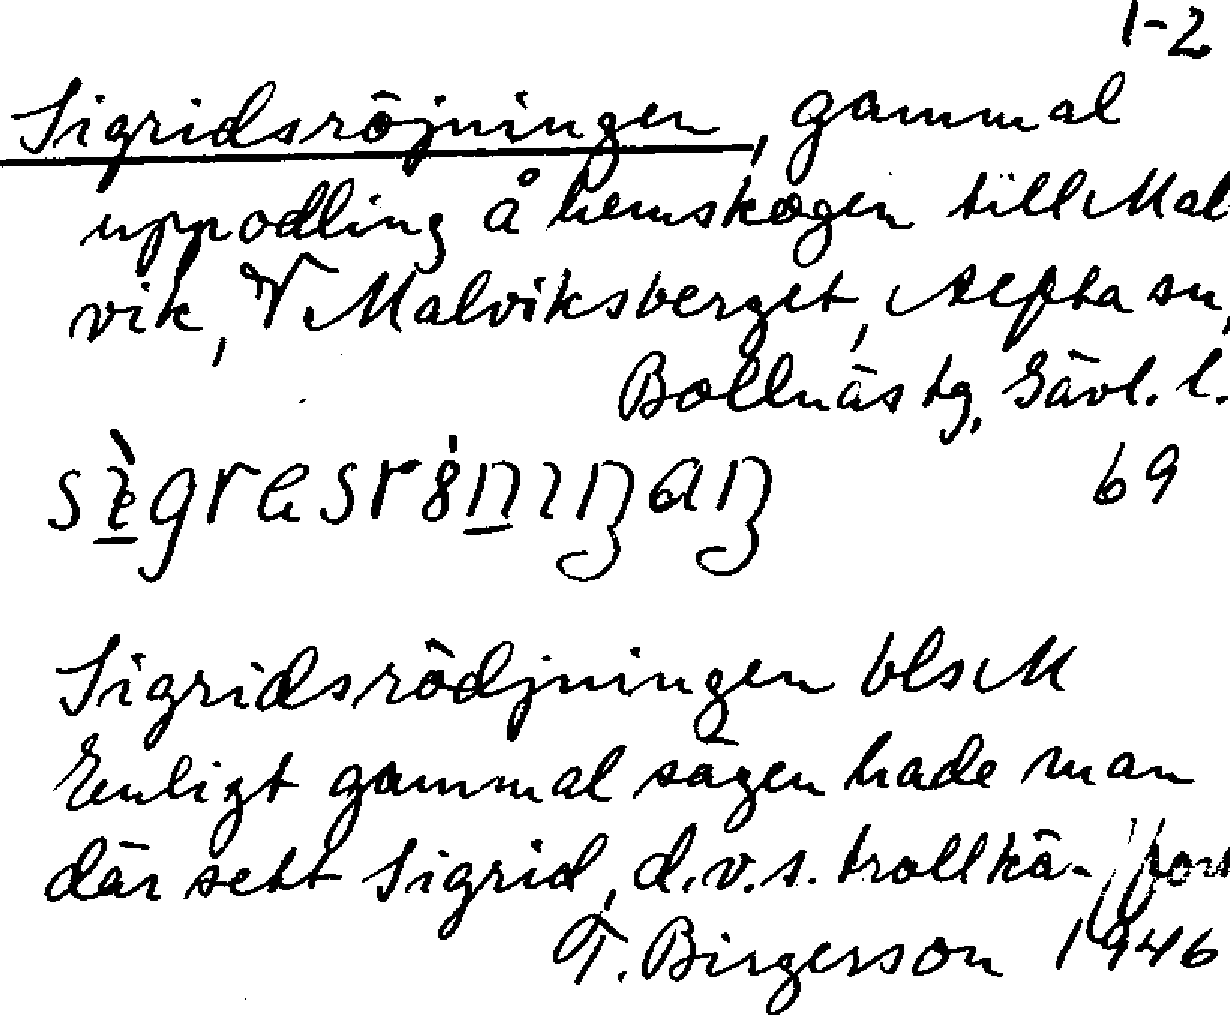 1-2
Sigridsröjningen, gammal
uppodling å hemskogen till Mal
vik, V Malviksberget, Alfta sn,
Bollnäs tg, Gävl. l.
69
Sigridsrödjningen blsM
Enligt gammal sägen hade man
där sett Sigrid, d.v.s. trollkä- // forts
T. Birgerson 1946